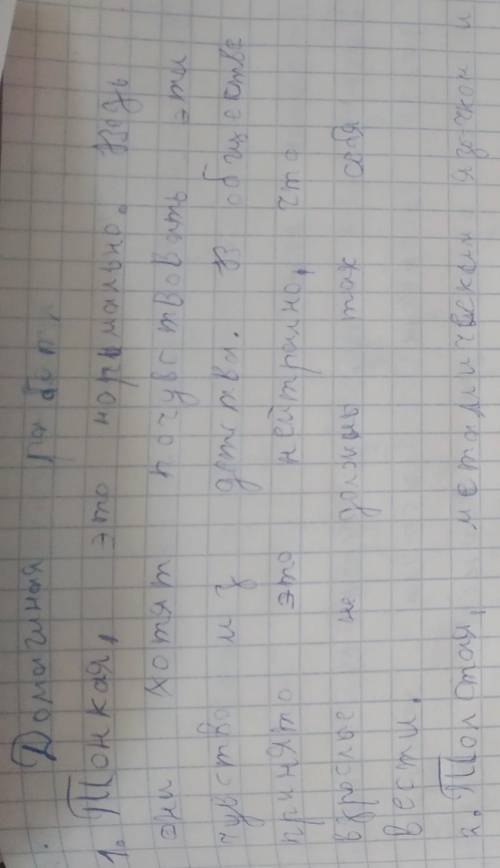 Домашняя работа
1. Тонкая, это нормально. Ведь
они хотят почувствовать эти
чувство из детства. В обществе
принято это нейтрално, что
взрослые не должны так себя
вести.
2. Толстая, металическим язычком и